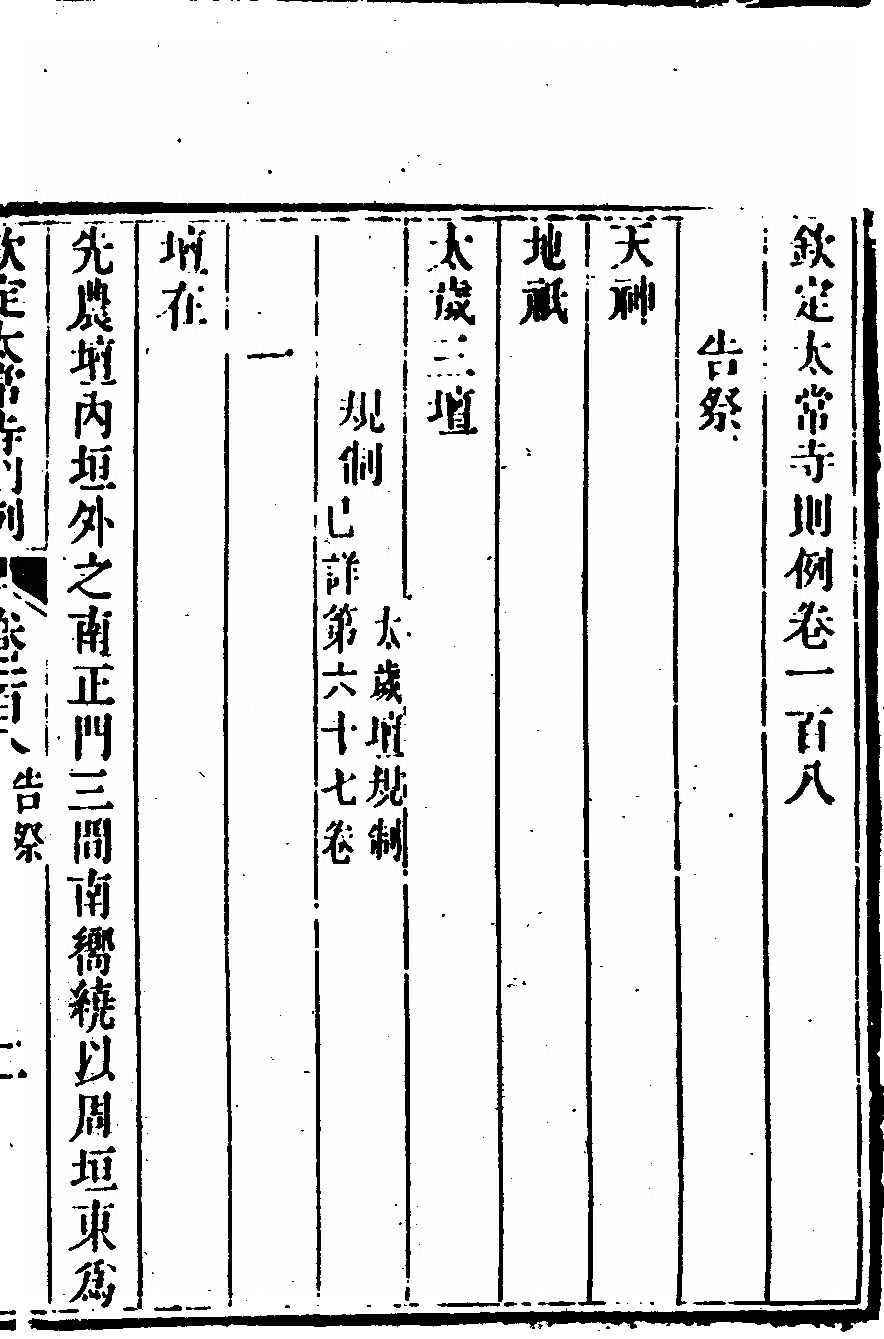 欽定太常寺則例卷一百八
告祭
天神
地祇
太歲三壇
規制 太歲壇規制
已詳第六十七卷
一
壇在
先農壇內垣外之南正門三間南嚮繞以周垣東爲
欽定太常寺則例 卷一百八 告祭 一